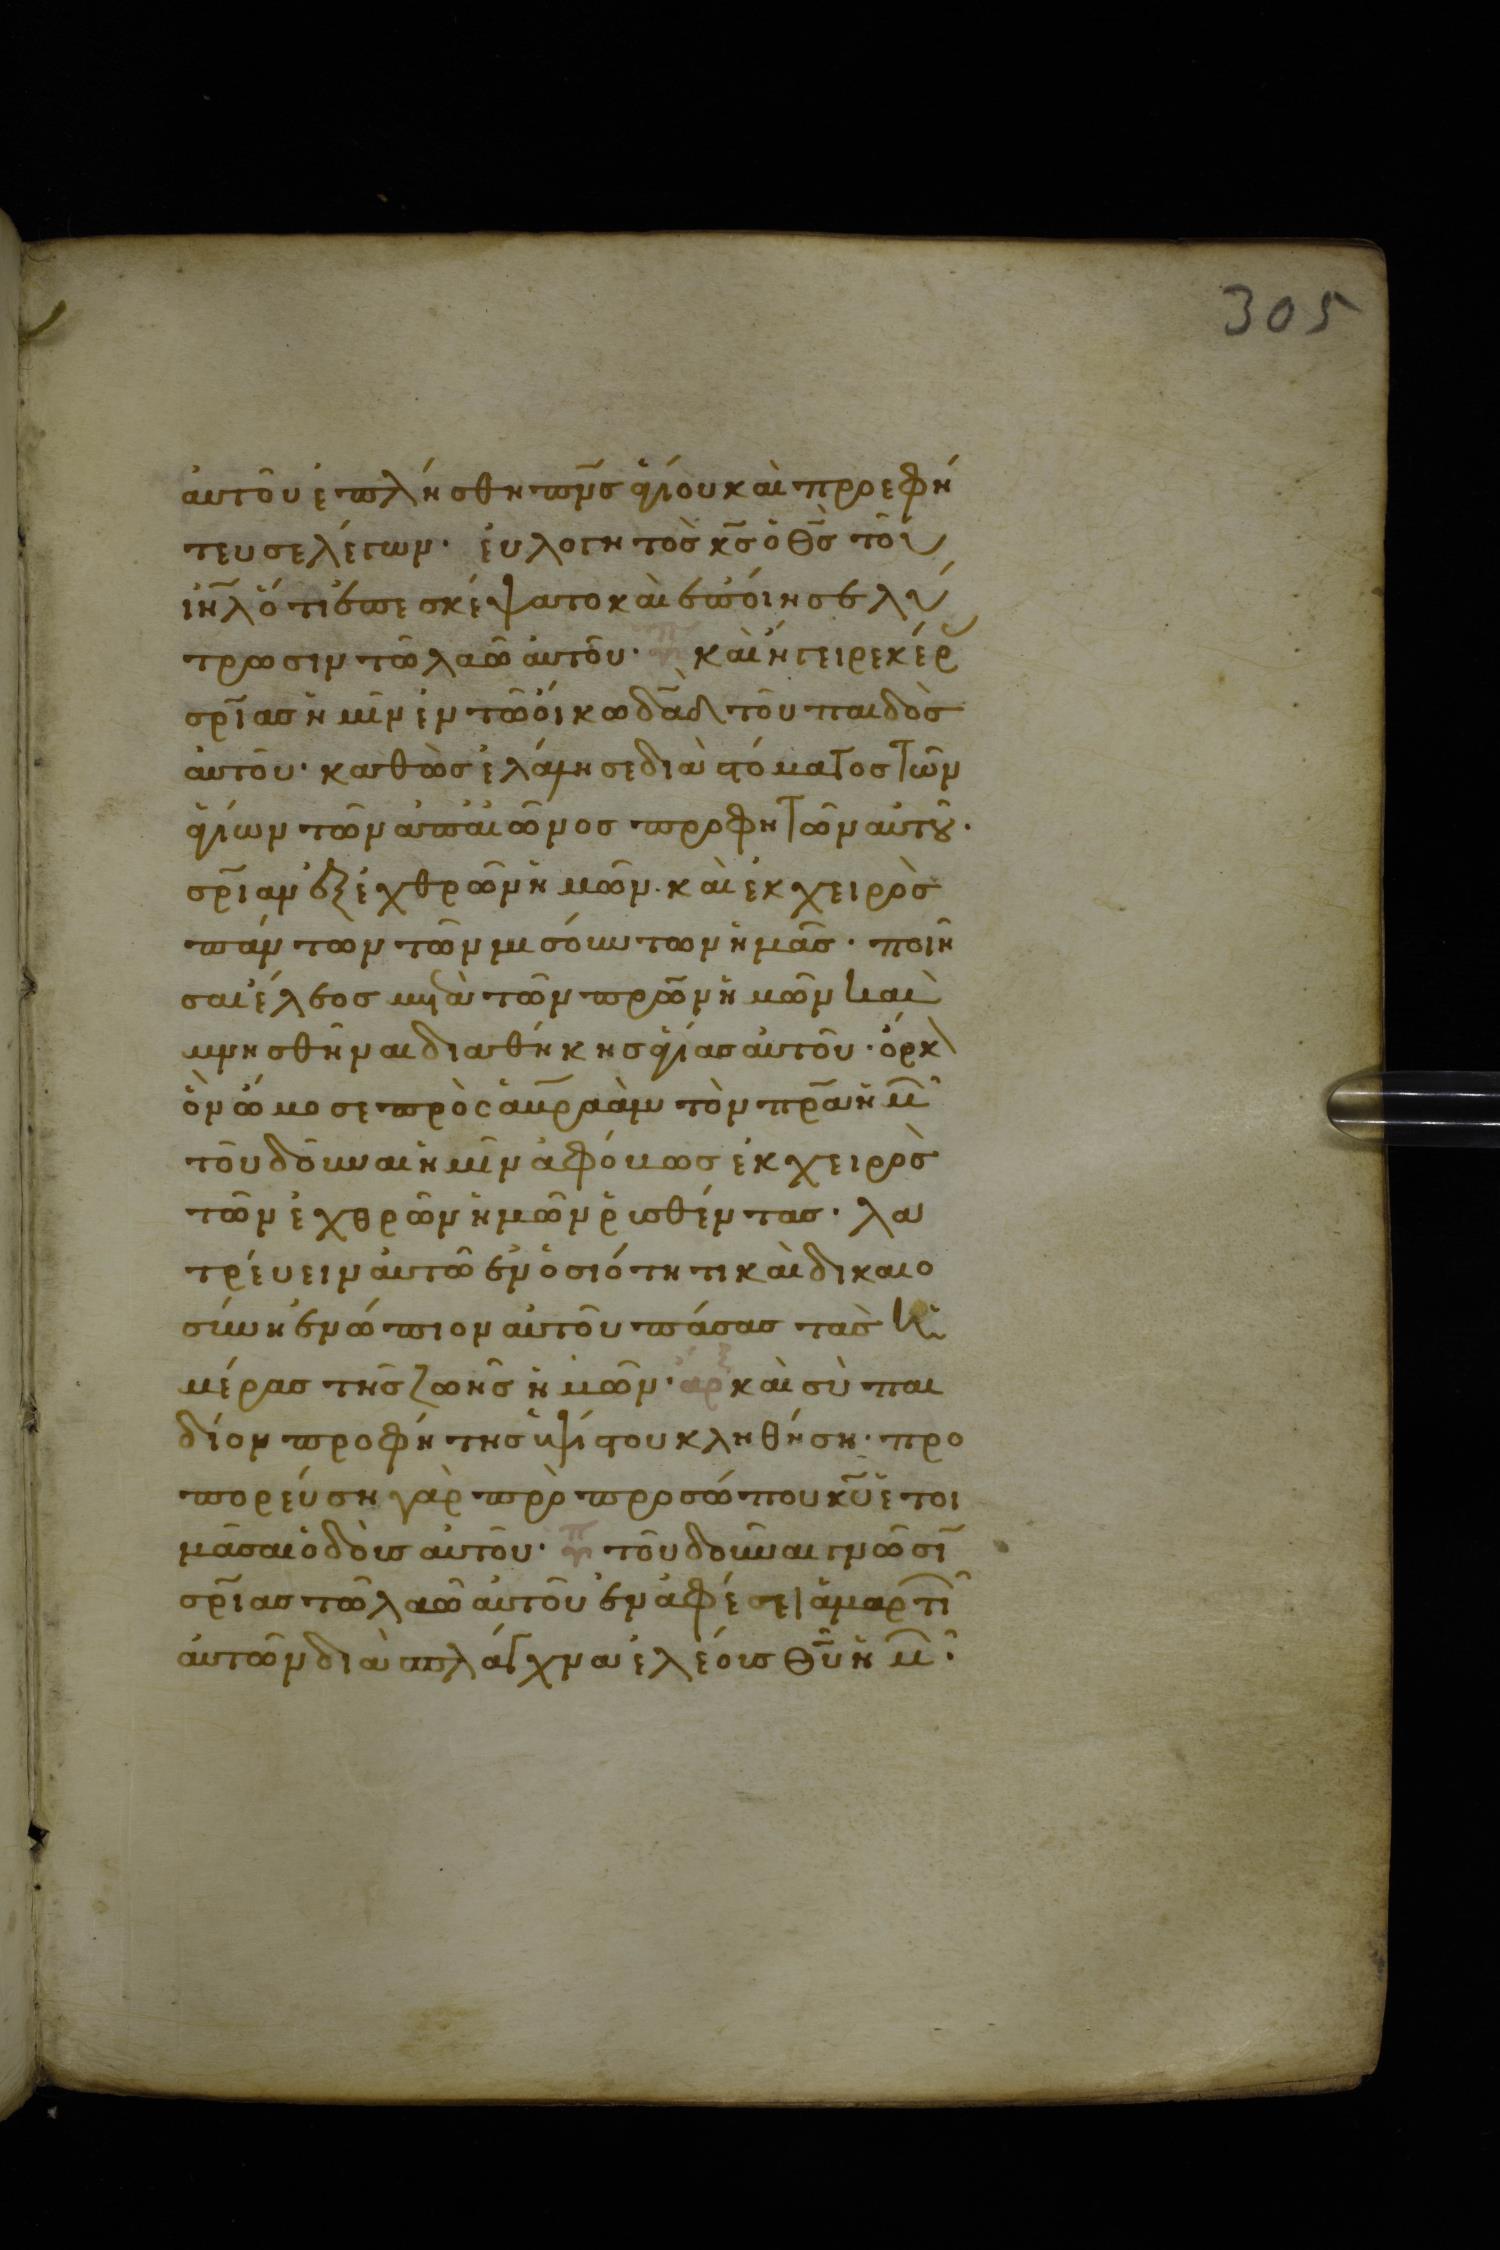 305
ἀυτοῦ ἐπλήσθη πν̅σ ἁγίου καὶ προεφή
τευσε λέγων· ἐυλογητὸσ κ̅σ ὁ θ̅σ τοῦ
ι̅η̅λ ὅτι ἐπεσκέψατο καὶ ἐποίησε λύ
τρωσιν τῶ λαῶ ἀυτοῦ· καὶ ἤγειρε κέρ
σρ̅ιασ ἡμῖν ἐν τῶ ὄικω δα̅δ τοῦ παιδὸσ
ἀυτοῦ· καθὼσ ἐλάλησε διὰ στόματοσ τῶν
ἁγίων τῶν ἀπ αἰῶνοσ προφητῶν αὐτοῦ·
σρ̅ιαν ἐξ ἐχθρῶν ἡμῶν· καὶ ἐκ χειρὸσ
πάντων τῶν μισούντων ἡμᾶσ· ποιῆ
σαι ἔλεοσ μετὰ τῶν πρω̅ν ἡμῶν καὶ
μνησθῆναι διαθήκησ ἁγίασ ἀυτοῦ· ὅρκ
ὃν ὤμοσε πρὸσ ἁβραὰμ τὸν πρ̅α ἡμ
τοῦ δοῦναι ἡμῖν ἀφόβωσ ἐκ χειρὸσ
τῶν ἐχθρῶν ἡμῶν ῥυσθέντασ· λα
τρέυειν ἀυτῶ ἐν ὁσιότητι καὶ δικαιο
σύνη ἐνώπιον αὐτοῦ πάσασ τὰσ ἡ
μέρασ τῆσ ζωῆσ ἡμῶν· καὶ σὺ παι
δίον προφήτησ ὑψίστου κληθήση· προ
πορέυση γὰρ πρὸ προσώπου κ̅υ ἑτοι
μᾶσαι ὁδοὺσ αὐτοῦ· τοῦ δοῦναι γνῶσι
σρ̅ιασ τῶ λαῶ ἀυτοῦ ἐν ἀφέσει ἁμαρτι
ἀυτῶν διὰ σπλάγχνα ἐλέουσ θ̅υ ἡμ·